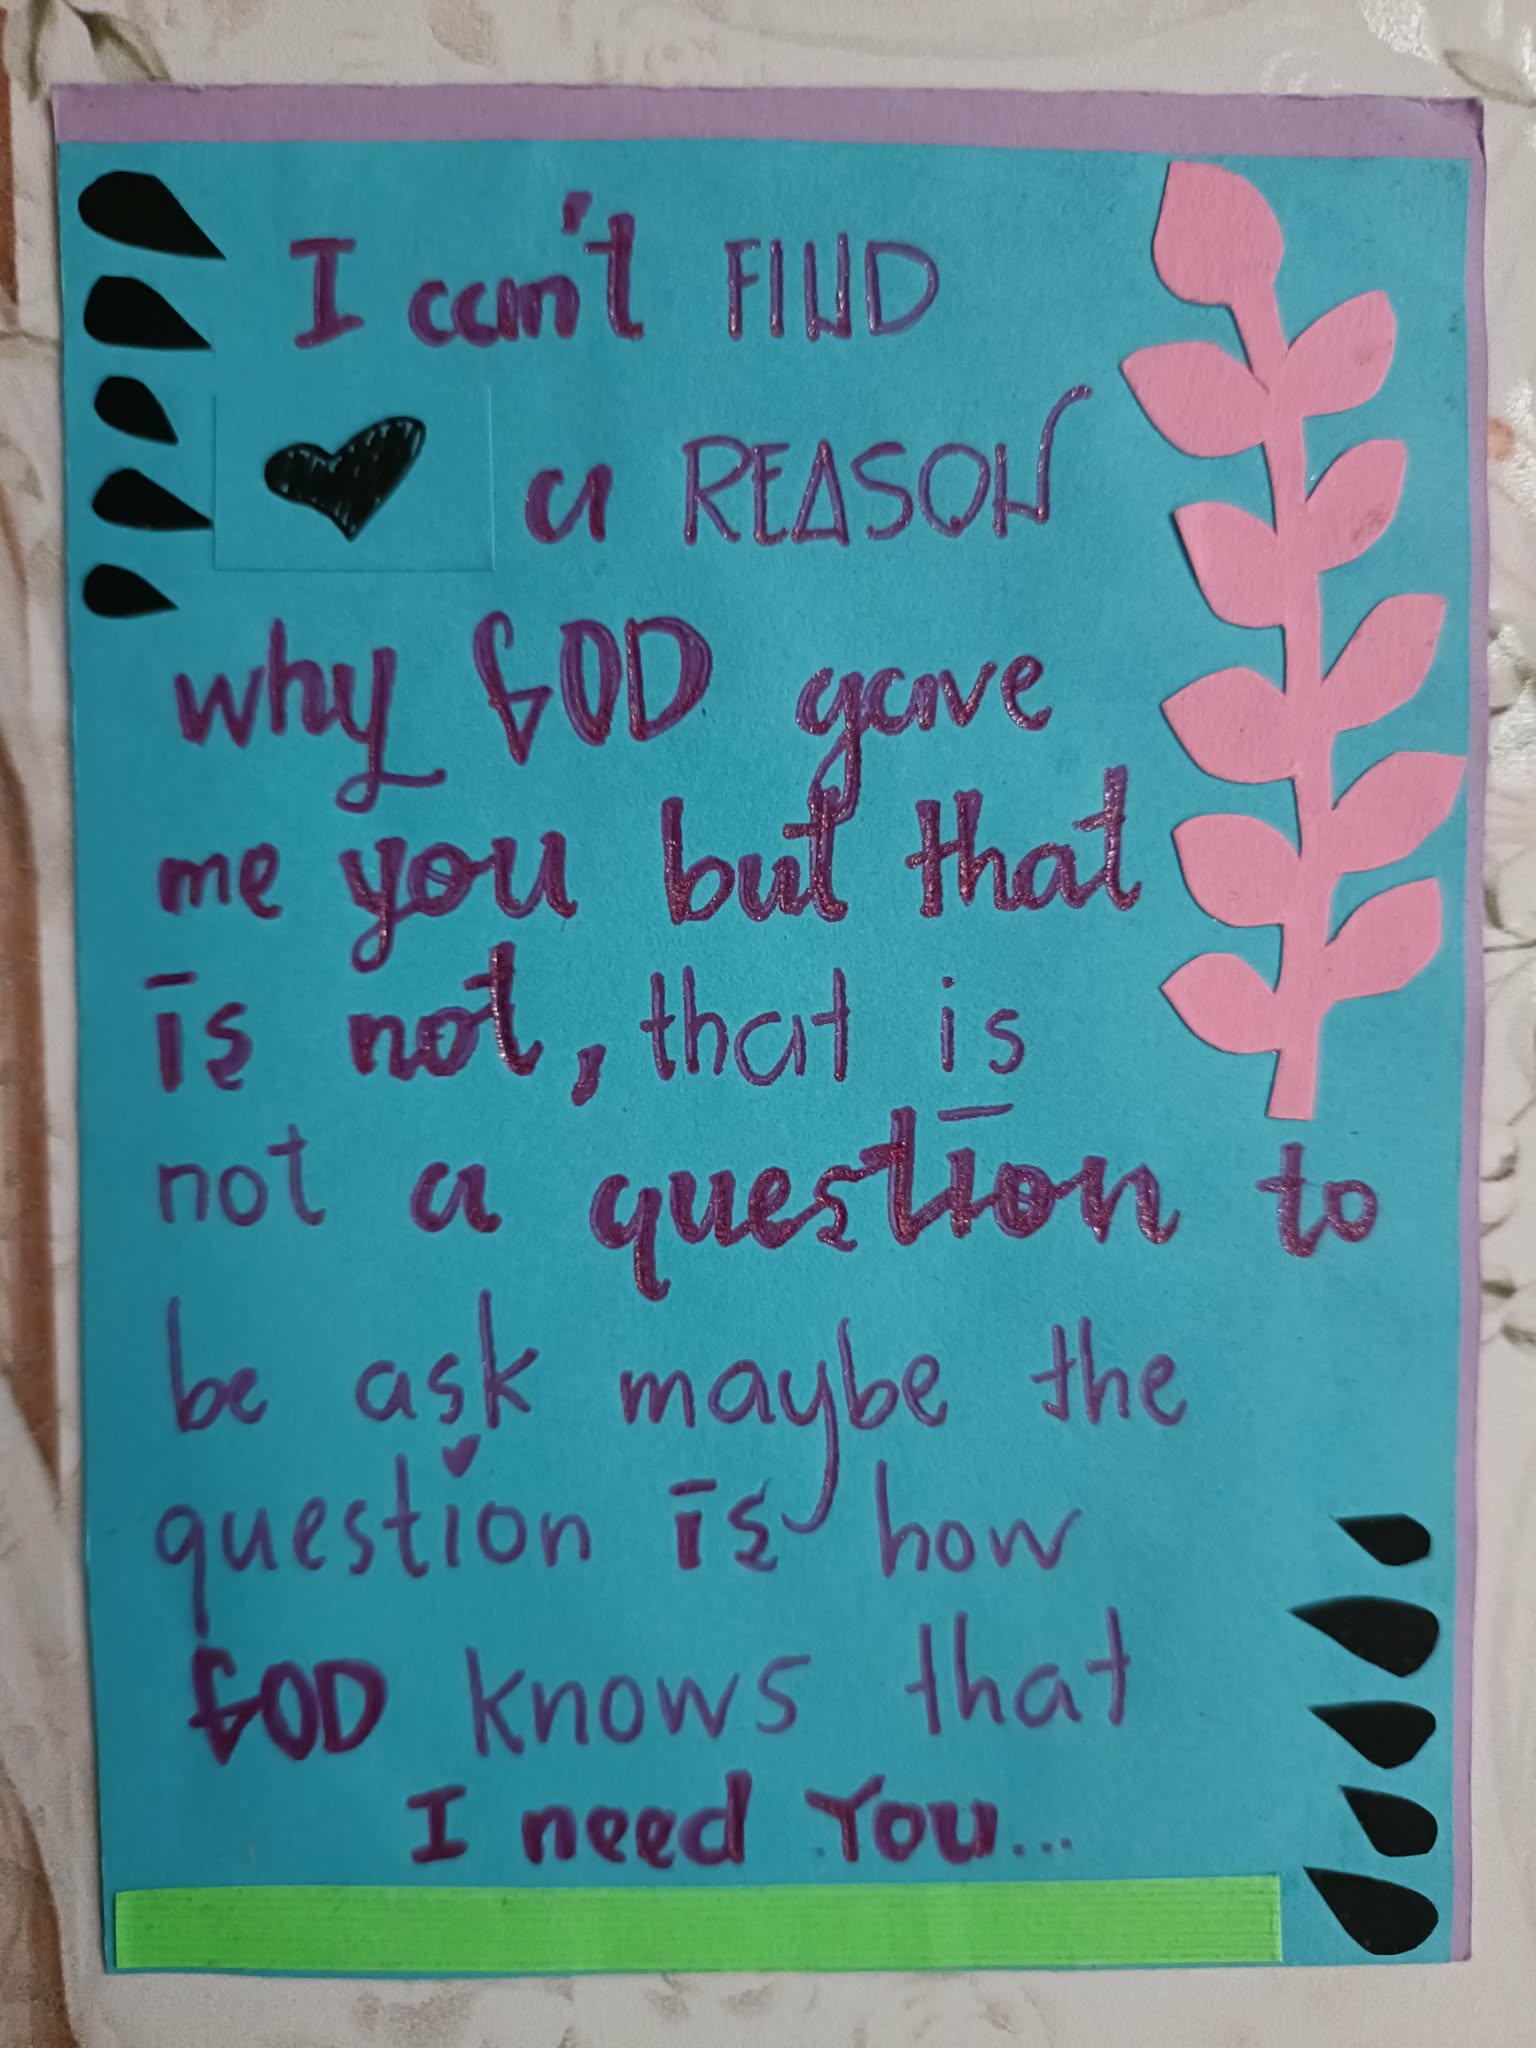 I can't FIND
a REASON
why GOD gave
me you but that
is not, that is
not a question to
be ask maybe the
question is how
GOD knows that
I need You...